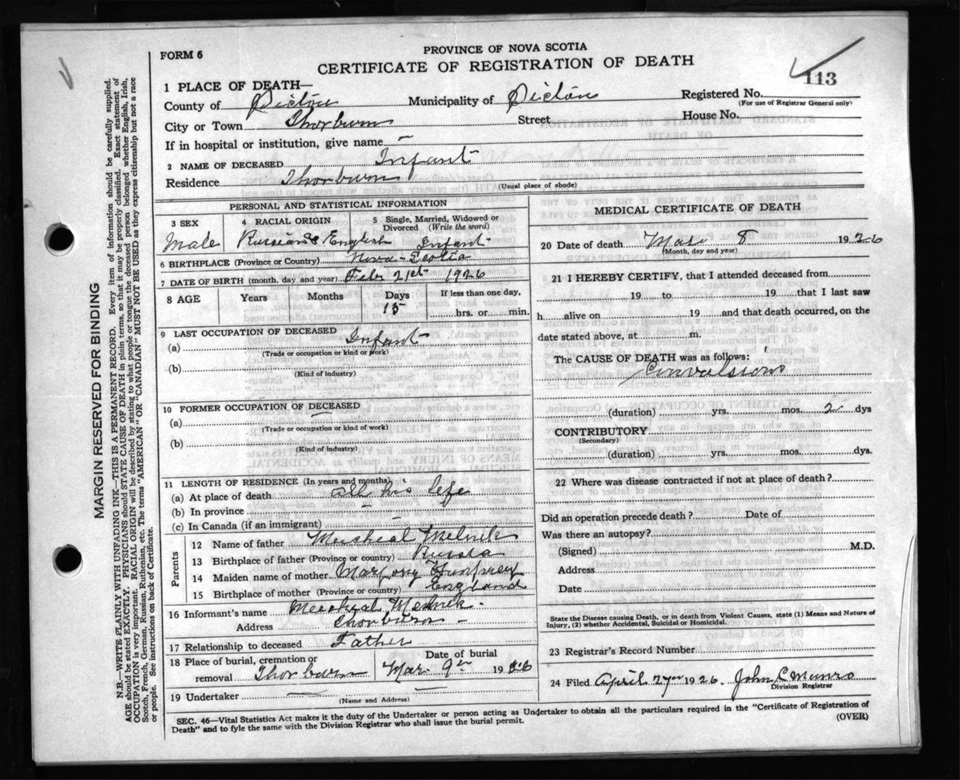 PROVINCE OF NOVA SCOTIA
FORM 6
CERTIFICATE OF REGISTRATION OF DEATH
113
1 PLACE OF DEATH—
Registered No.
(For use of Registrar General only)
County of Pictou Municipality of Pictou
City or Town Thorburn Street House No.
If in hospital or institution, give name —
2 NAME OF DECEASED Infant
Residence Thorburn
(Usual place of abode)
PERSONAL AND STATISTICAL INFORMATION
3 SEX 4 RACIAL ORIGIN 5 Single, Married, Widowed or Divorced (Write the word)
Male Russian & English Infant
6 BIRTHPLACE (Province or Country) Nova-Scotia
7 DATE OF BIRTH (month, day and year) Feb 21st 1926
8 AGE Years Months Days If less than one day,
15 hrs. or min.
9 LAST OCCUPATION OF DECEASED
(a) Infant
(Trade or occupation or kind or work)
(b)
(Kind of industry)
10 FORMER OCCUPATION OF DECEASED
(a) —
(Trade or occupation or kind or work)
(b)
(Kind of industry)
11 LENGTH OF RESIDENCE (In years and months)
(a) At place of death All his life
(b) In province —
(c) In Canada (if an immigrant) —
Parents
12 Name of father Musheal Melnek
13 Birthplace of father (Province or country) Russia
14 Maiden name of mother Marjory Humprey
15 Birthplace of mother (Province or country) England
16 Informant's name Melnek
Address Thorburn
17 Relationship to deceased Father
18 Place of burial, cremation or removal Thorburn
Date of burial
Mar. 9th 1926
19 Undertaker —
(Name and Address)
MEDICAL CERTIFICATE OF DEATH
20 Date of death Mar 8 1926
(Month, day and year)
21 I HEREBY CERTIFY, that I attended deceased from
19 to 19 that I last saw
h alive on 19 and that death occurred, on the
date stated above, at m.
The CAUSE OF DEATH was as follows:
Convulsions
(duration) yrs. mos. 2 dys
CONTRIBUTORY
(Secondary)
(duration) yrs. mos. dys.
22 Where was disease contracted if not at place of death?
Did an operation precede death? Date of
Was there an autopsy?
(Signed) M.D.
Address
Date
State the Disease causing Death, or in death from Violent Causes, state (1) Means and Nature of
Injury, (2) whether Accidental, Suicidal or Homicidal.
23 Registrar's Record Number
24 Filed April 27 1926. John C Munro
Division Registrar
SEC. 46—Vital Statistics Act makes it the duty of the Undertaker or person acting as Undertaker to obtain all the particulars required in the "Certificate of Registration of
Death" and to fyle the same with the Division Registrar who shall issue the burial permit.
(OVER)
MARGIN RESERVED FOR BINDING
N.B.—WRITE PLAINLY WITH UNFADING INK—THIS IS A PERMANENT RECORD. Every item of information should be carefully supplied.
AGE should be stated EXACTLY. PHYSICIANS should STATE CAUSE OF DEATH in plain terms, so that it may be properly classified. Exact statement of
OCCUPATION is very important. RACIAL ORIGIN will be described by stating to what people or tongue the deceased person belonged whether English, Irish,
Scotch, French, German, Russian, Ruthenian, etc. The terms "AMERICAN" OR "CANADIAN" MUST NOT BE USED as they express citizenship but not a race
or people. See instructions on back of Certificate.